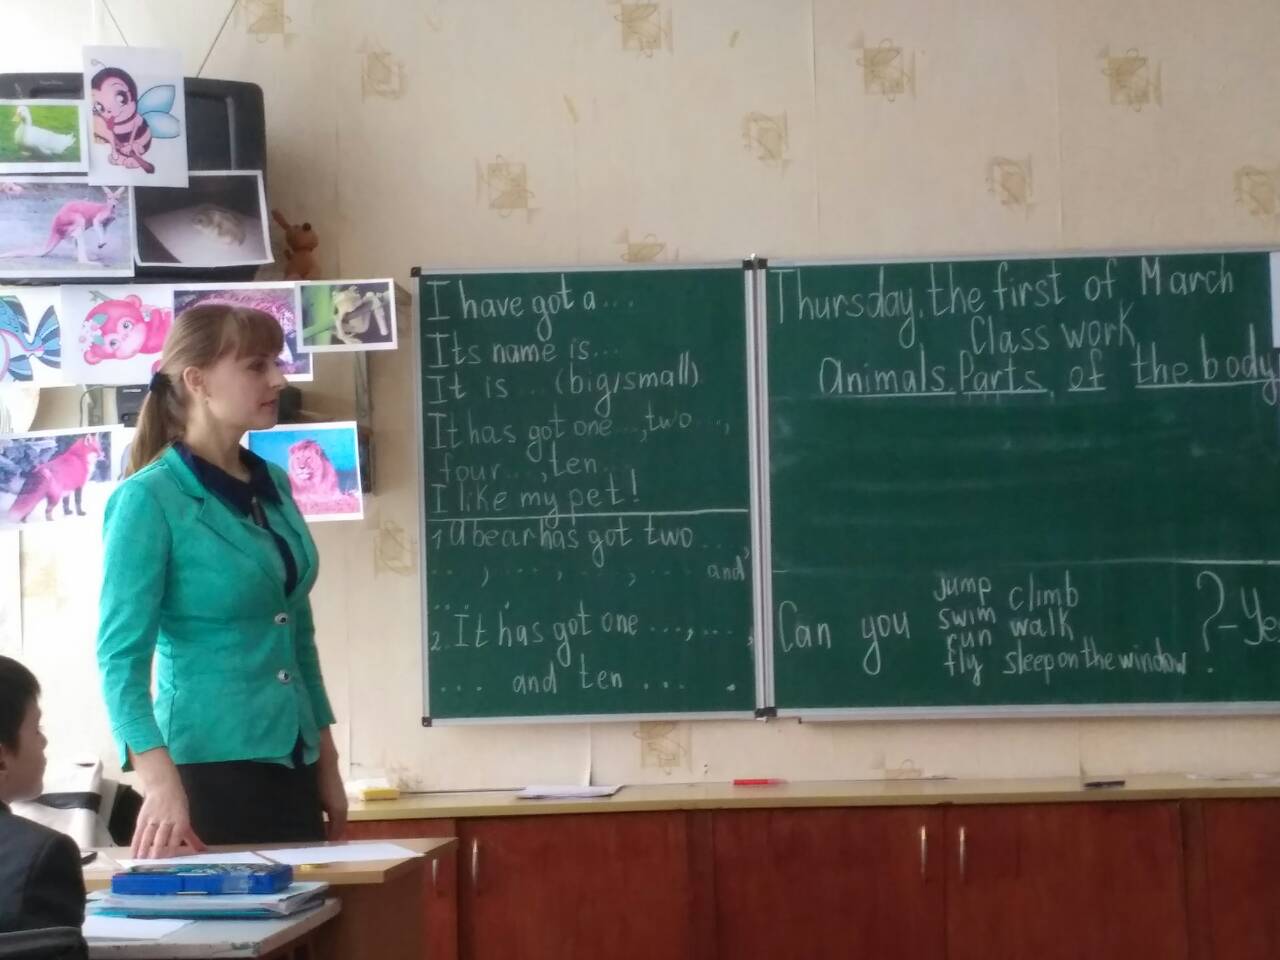 I have got a...
Its name is...
It is ... (big/small)
It has got one ..., two ...,
four ..., ten ...
I like my pet!
1. A bear has got two ...
..., ..., ..., ... and
...
2. It has got one ..., ...,
... and ten ... .
Thursday, the first of March
Class work
Animals. Parts of the body
Can you jump climb ? - Ye
swim walk
run
fly sleep on the window